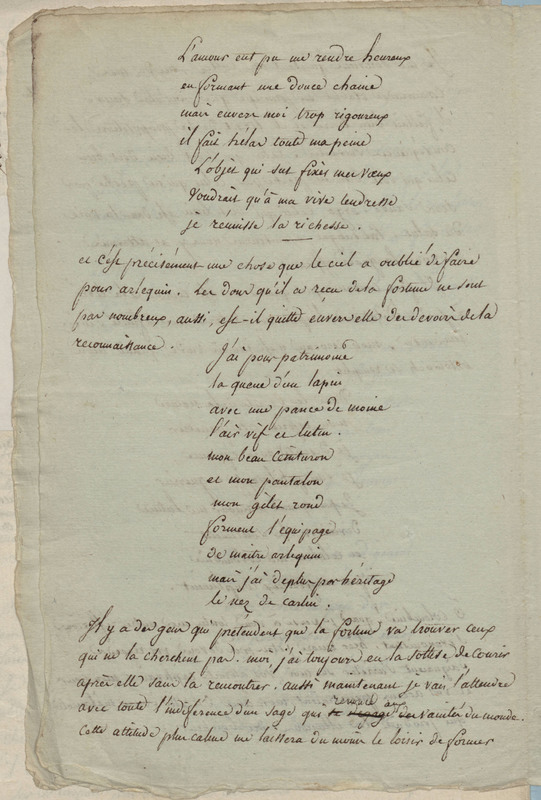 L'amour eut pu me rendre heureux
en formant une douce chaine
mais envers moi trop rigoureux
il fait hélas toute ma peine
L'objet qui sut fixer mes vœux
Voudrait qu'à ma vive tendresse
je réunisse la richesse.
et c'est précisément une chose que le ciel a oublié de faire
pour arlequin. Les dons qu'il a reçu de la fortune ne sont
pas nombreux, aussi, est-il quitte envers elle des devoirs de la
reconnaissance.
J'ai pour patrimoine
la queue d'un lapin
avec une pance de moine
l'air vif et lutin.
mon beau ceinturon
et mon pantalon
mon gilet rond
forment l'équipage
de maitre arlequin
mais j'ai de plus par héritage
le nez de carlin.
Il y a des gens qui prétendent que la fortune va trouver ceux
qui ne la cherchent pas. moi, j'ai toujours eu la sottise de courir
après elle sans la rencontrer. aussi maintenant je vais l'attendre
avec toute l'indifférence d'un sage qui renonce aux vanités du monde.
Cette attitude plus calme me laissera du moins le loisir de former